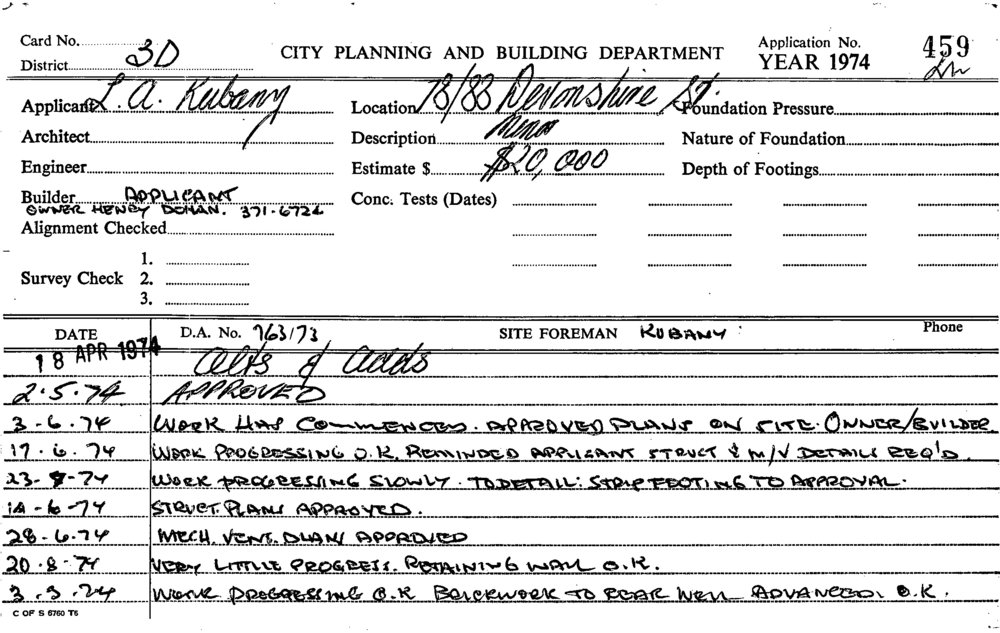 Card No. 3D
District
CITY PLANNING AND BUILDING DEPARTMENT
Application No. 459
YEAR 1974
Applicant L. A. Kubany
Location 78/88 Devonshire St.
Foundation Pressure
Architect
Description Minor
Nature of Foundation
Engineer
Estimate $ $20,000
Depth of Footings
Builder APPLICANT
OWNER HENRY DOMAN. 371-6726
Conc. Tests (Dates)
Alignment Checked
Survey Check 1.
2.
3.
DATE D.A. No. 763/73 SITE FOREMAN KUBANY Phone
18 APR 1974 Alts & Adds
2.5.74 APPROVED
3-6.74 WORK HAS COMMENCED. APPROVED PLANS ON SITE. OWNER/BUILDER
17.6.74 WORK PROGRESSING O.K. REMINDED APPLICANT STRUCT & M/V DETAILS REQ'D.
23- -74 WORK PROGRESSING SLOWLY. TO DETAIL: STRIP FOOTING TO APPROVAL.
-6-74 STRUCT. PLANS APPROVED.
28-6-74 MECH. VENT. PLANS APPROVED
20.8.74 VERY LITTLE PROGRESS. RETAINING WALL O.K.
3.3.74 WORK PROGRESSING O.K BRICKWORK TO REAR WELL ADVANCED. O.K.
C OF S 6760 T6